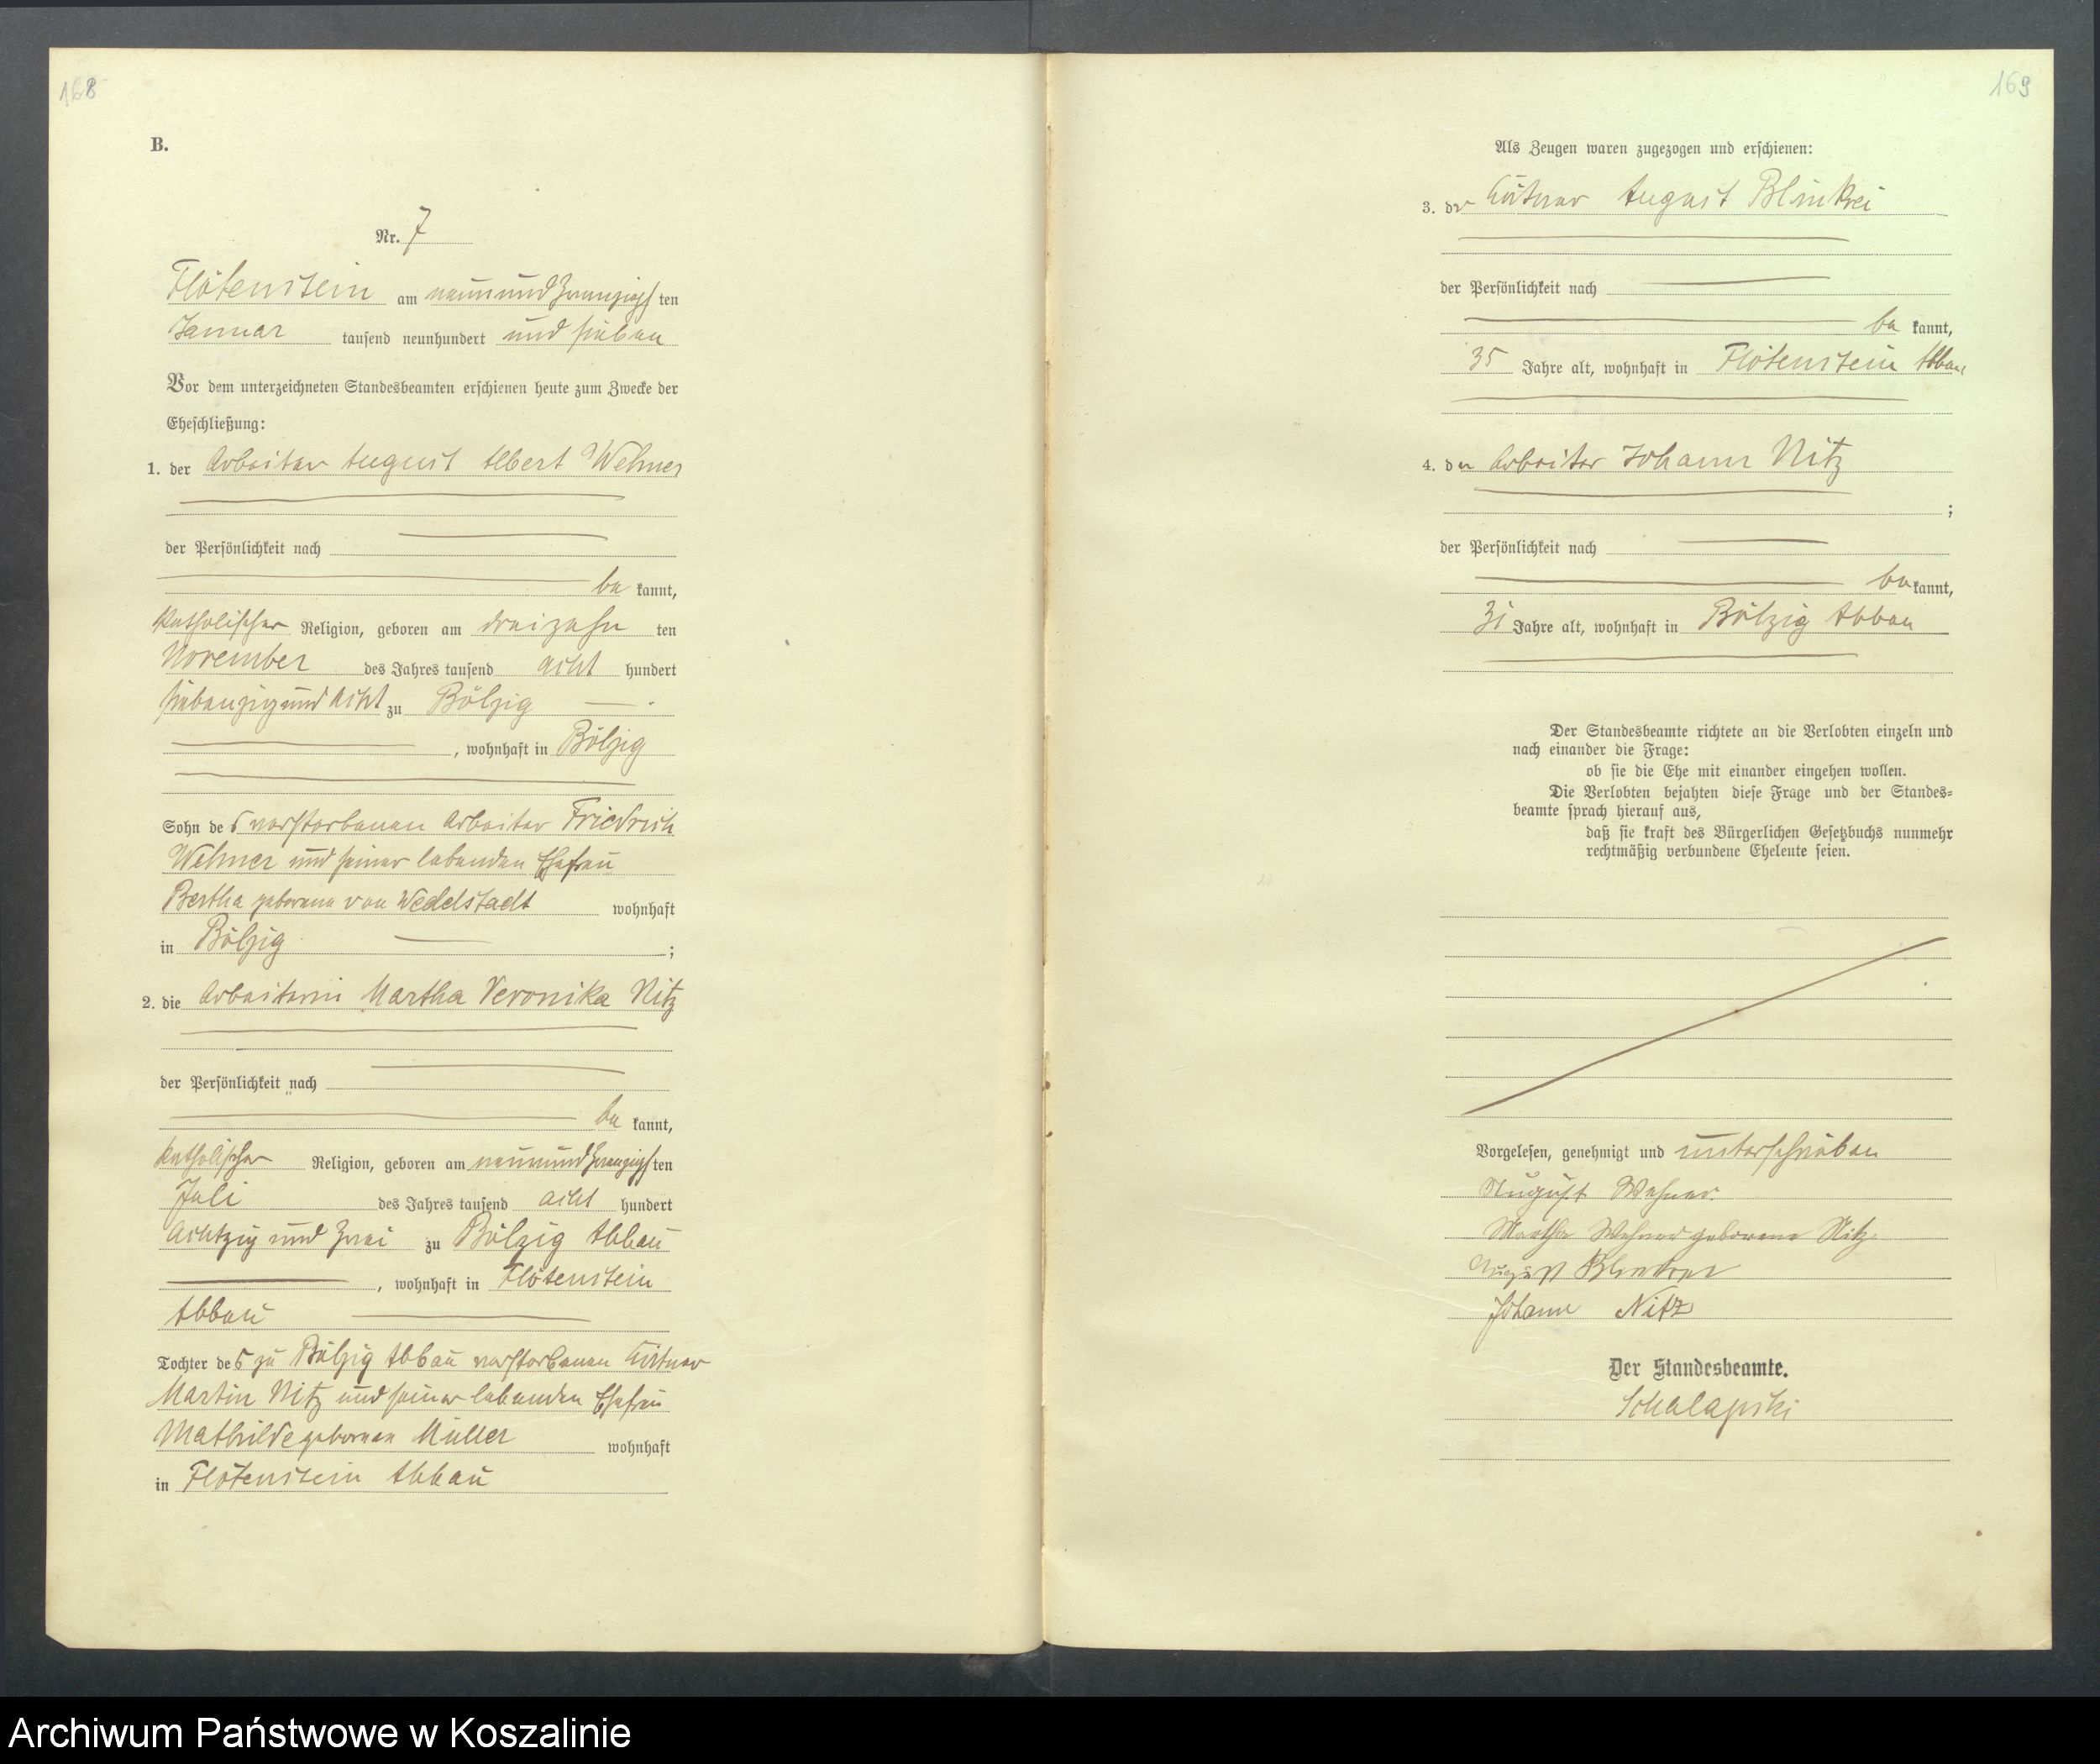 168
B.
Nr. 7
Flötenstein am neunundzwanzigsten
Januar tausend neunhundert und sieben
Vor dem unterzeichneten Standesbeamten erschienen heute zum Zwecke der
Eheschließung:
1. der Arbeiter August Albert Wehner
der Persönlichkeit nach
be kannt,
katholischer Religion, geboren am dreizehn ten
November des Jahres tausend acht hundert
siebenzig und acht zu Bölzig
, wohnhaft in Bölzig
Sohn des verstorbenen Arbeiter Friedrich
Wehner und seiner lebenden Ehefrau
Bertha geborene von Wedelstädt wohnhaft
in Bölzig ;
2. die Arbeiterin Martha Veronika Nitz
der Persönlichkeit nach
be kannt,
katholischer Religion, geboren am neunundzwanzigsten
Juli des Jahres tausend acht hundert
achtzig und zwei zu Bölzig Abbau
, wohnhaft in Flötenstein
Abbau
Tochter des zu Bölzig Abbau verstorbenen Kätner
Martin Nitz und seiner lebenden Ehefrau
Mathilde geborenen Müller wohnhaft
in Flötenstein Abbau
169
Als Zeugen waren zugezogen und erschienen:
3. der Kätner August Blinkrei
der Persönlichkeit nach
be kannt,
35 Jahre alt, wohnhaft in Flötenstein Abbau
4. der Arbeiter Johann Nitz
;
der Persönlichkeit nach
be kannt,
31 Jahre alt, wohnhaft in Bölzig Abbau
Der Standesbeamte richtete an die Verlobten einzeln und
nach einander die Frage:
ob sie die Ehe mit einander eingehen wollen.
Die Verlobten bejahten diese Frage und der Standes-
beamte sprach hierauf aus,
daß sie kraft des Bürgerlichen Gesetzbuchs nunmehr
rechtmäßig verbundene Eheleute seien.
Vorgelesen, genehmigt und unterschrieben
August Wehner.
Martha Wehner geborene Nitz.
August
Johann Nitz
Der Standesbeamte.
Schalapski
Archiwum Państwowe w Koszalinie